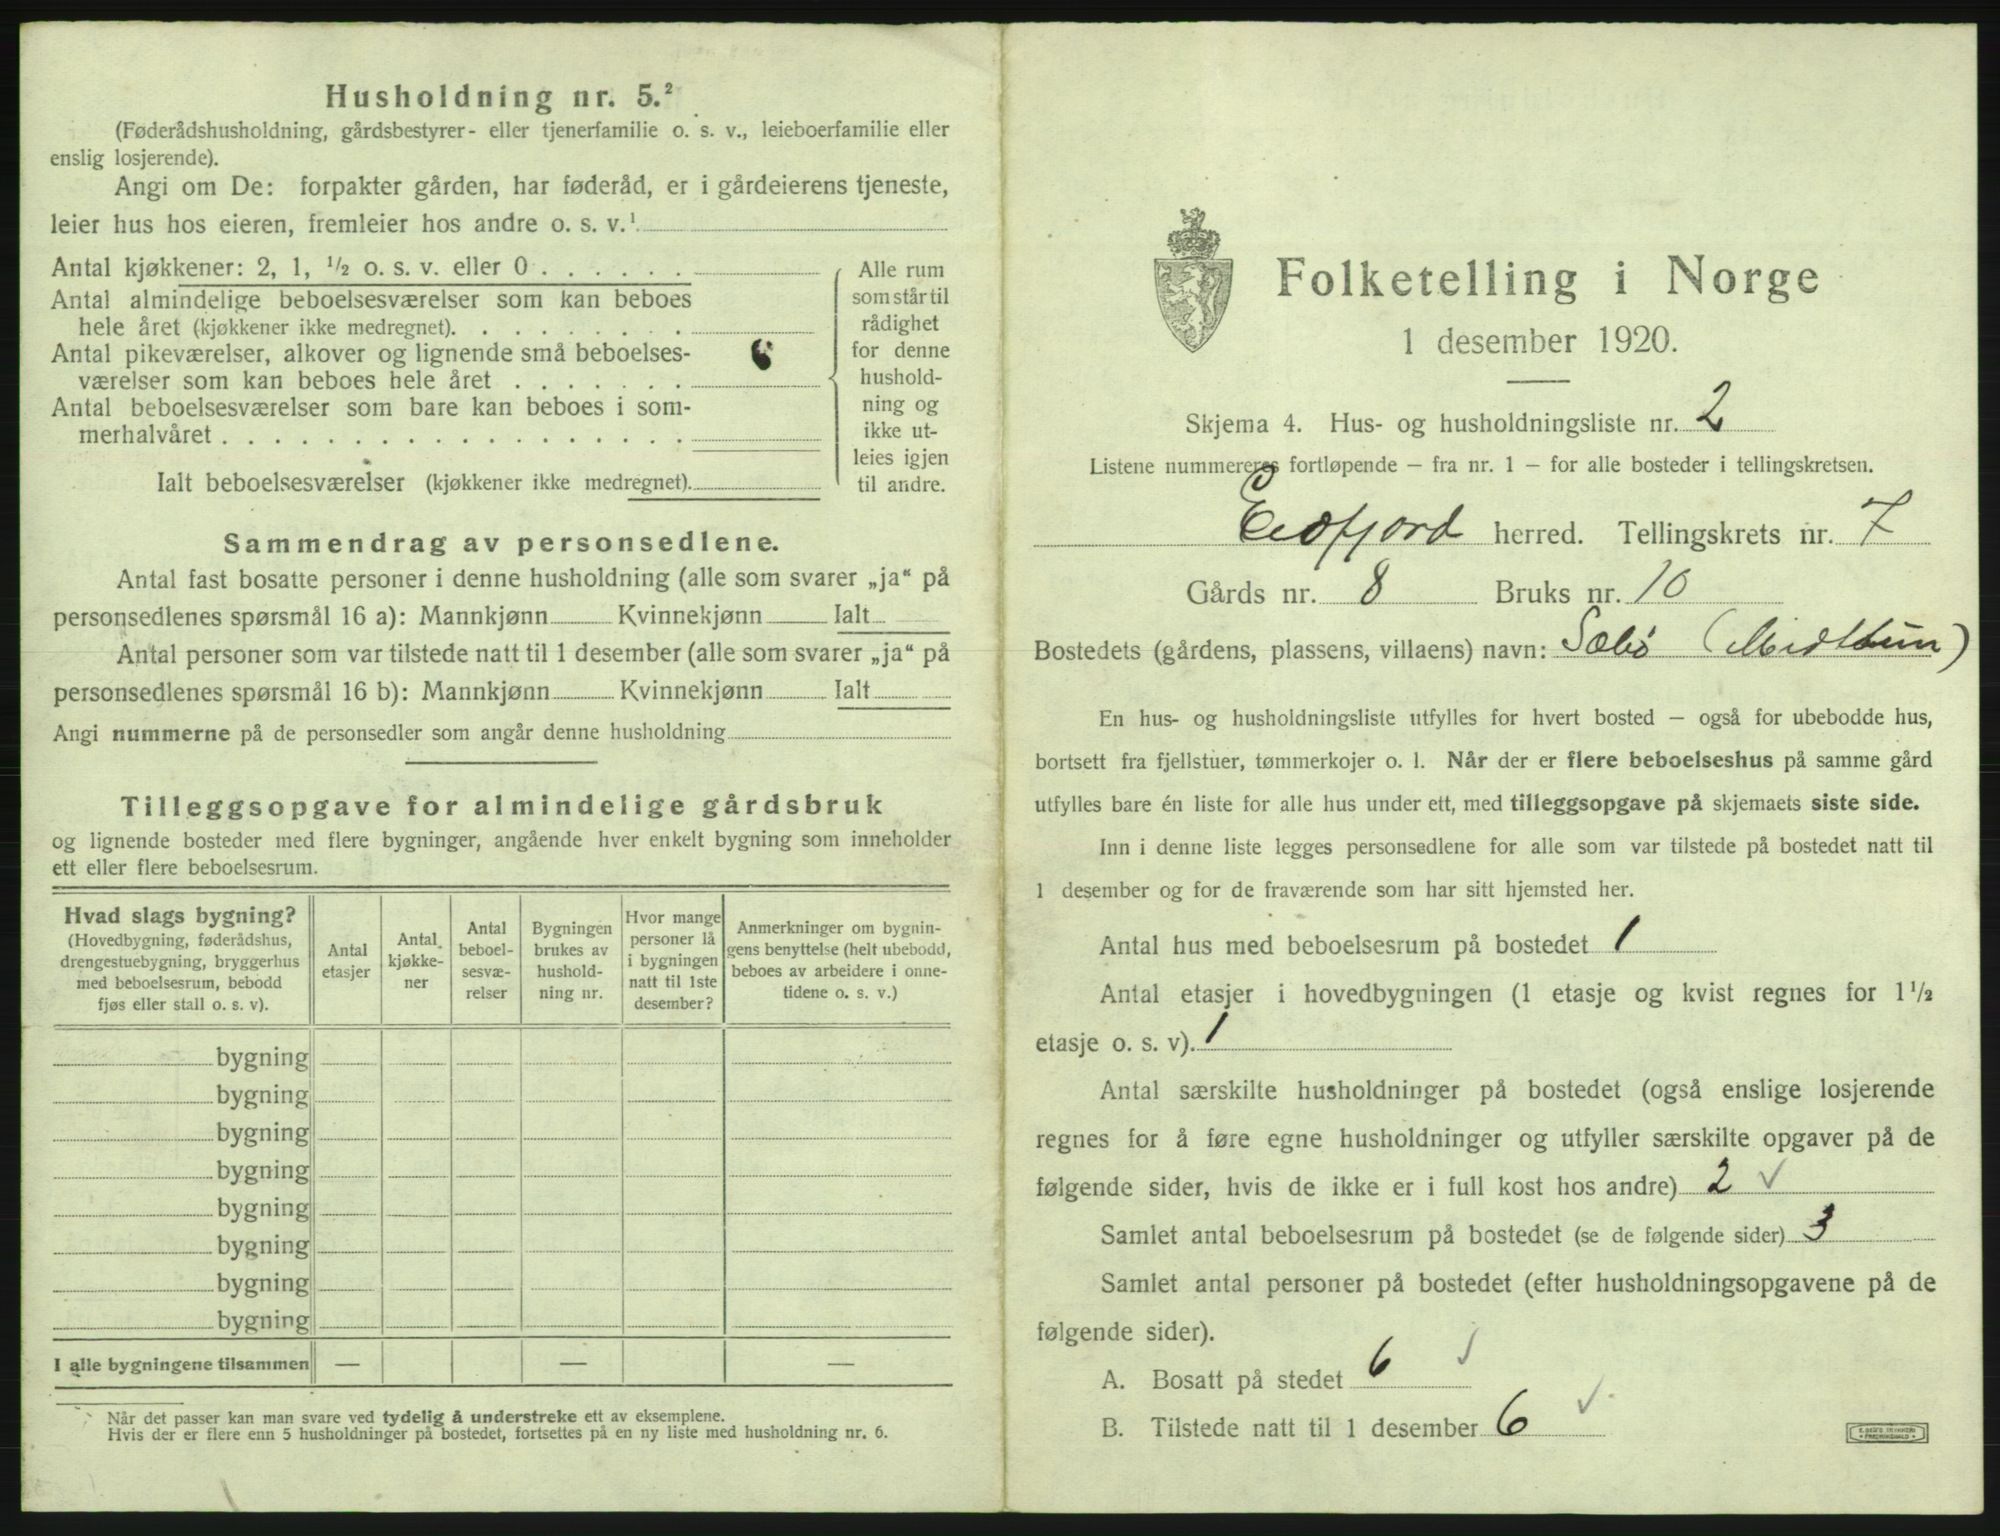 Husholdning nr. 5.²
(Føderådshusholdning, gårdsbestyrer- eller tjenerfamilie o. s. v., leieboerfamilie eller
enslig losjerende).
Angi om De: forpakter gården, har føderåd, er i gårdeierens tjeneste,
leier hus hos eieren, fremleier hos andre o. s. v.¹
Antal kjøkkener: 2, 1, ½ o. s. v. eller 0 . . . . . .
Antal almindelige beboelsesværelser som kan beboes
hele året (kjøkkener ikke medregnet). . . . . . . . .
Antal pikeværelser, alkover og lignende små beboelses-
værelser som kan beboes hele året . . . . . . .
Antal beboelsesværelser som bare kan beboes i som-
merhalvåret . . . . . . . . . . . . . . . . . .
Ialt beboelsesværelser (kjøkkener ikke medregnet).
Alle rum
som står til
rådighet
for denne
hushold-
ning og
ikke ut-
leies igjen
til andre.
Sammendrag av personsedlene.
Antal fast bosatte personer i denne husholdning (alle som svarer „ja“ på
personsedlenes spørsmål 16 a): Mannkjønn Kvinnekjønn Ialt
Antal personer som var tilstede natt til 1 desember (alle som svarer „ja“ på
personsedlenes spørsmål 16 b): Mannkjønn Kvinnekjønn Ialt
Angi nummerne på de personsedler som angår denne husholdning
Tilleggsopgave for almindelige gårdsbruk
og lignende bosteder med flere bygninger, angående hver enkelt bygning som inneholder
ett eller flere beboelsesrum.
Hvad slags bygning?
(Hovedbygning, føderådshus,
drengestuebygning, bryggerhus
med beboelsesrum, bebodd
fjøs eller stall o. s. v).
Antal
etasjer
Antal
kjøkke-
ner
Antal
beboel-
sesvæ-
relser
Bygningen
brukes av
hushold-
ning nr.
Hvor mange
personer lå
i bygningen
natt til 1ste
desember?
Anmerkninger om bygnin-
gens benyttelse (helt ubebodd,
beboes av arbeidere i onne-
tidene o. s. v.)
bygning
bygning
bygning
bygning
bygning
bygning
bygning
bygning
I alle bygningene tilsammen — — —
Når det passer kan man svare ved tydelig å understreke ett av eksemplene.
Hvis der er flere enn 5 husholdninger på bostedet, fortsettes på en ny liste med husholdning nr. 6.
Folketelling i Norge
1 desember 1920.
Skjema 4. Hus- og husholdningsliste nr. 2
Listene nummereres fortløpende – fra nr. 1 – for alle bosteder i tellingskretsen.
Eidfjord herred. Tellingskrets nr. 7
Gårds nr. 8 Bruks nr. 10
Bostedets (gårdens, plassens, villaens) navn: Sæbø (Midttun)
En hus- og husholdningsliste utfylles for hvert bosted – også for ubebodde hus,
bortsett fra fjellstuer, tømmerkojer o. l. Når der er flere beboelseshus på samme gård
utfylles bare én liste for alle hus under ett, med tilleggsopgave på skjemaets siste side.
Inn i denne liste legges personsedlene for alle som var tilstede på bostedet natt til
1 desember og for de fraværende som har sitt hjemsted her.
Antal hus med beboelsesrum på bostedet 1
Antal etasjer i hovedbygningen (1 etasje og kvist regnes for 1½
etasje o. s. v). 1
Antal særskilte husholdninger på bostedet (også enslige losjerende
regnes for å føre egne husholdninger og utfyller særskilte opgaver på de
følgende sider, hvis de ikke er i full kost hos andre) 2 ✓
Samlet antal beboelsesrum på bostedet (se de følgende sider) 3
Samlet antal personer på bostedet (efter husholdningsopgavene på de
følgende sider).
A. Bosatt på stedet 6 ✓
B. Tilstede natt til 1 desember 6 ✓